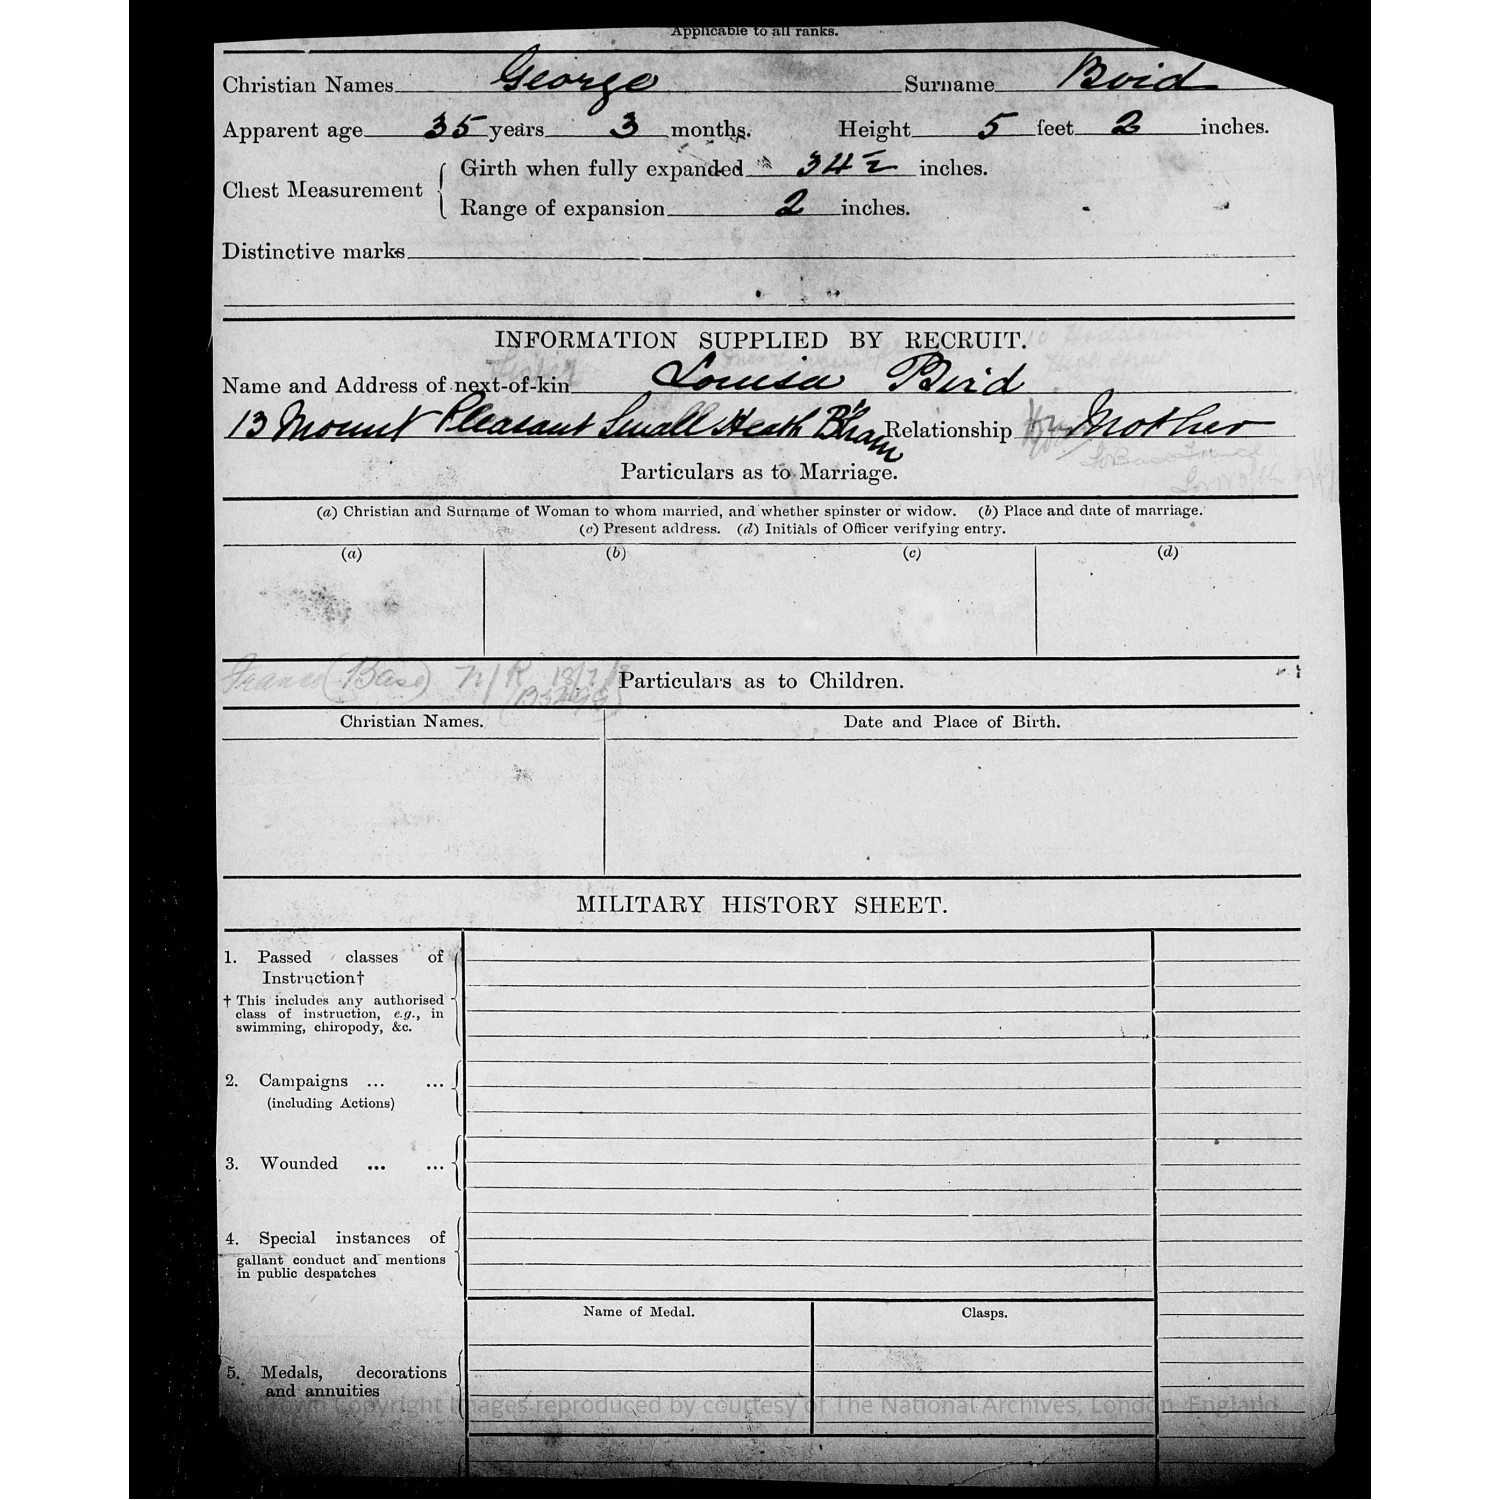 Applicable to all ranks.
Christian Names George Surname Bird
Apparent age 35 years 3 months. Height 5 feet 2 inches.
Chest Measurement { Girth when fully expanded 34½ inches.
Range of expansion 2 inches.
Distinctive marks
INFORMATION SUPPLIED BY RECRUIT.
Name and Address of next-of-kin Louisa Bird
13 Mount Pleasant Small Heath B'ham Relationship Mother
Particulars as to Marriage.
(a) Christian and Surname of Woman to whom married, and whether spinster or widow. (b) Place and date of marriage.
(c) Present address. (d) Initials of Officer verifying entry.
(a) (b) (c) (d)
France (Base) 18/7/18
Particulars as to Children.
Christian Names. Date and Place of Birth.
MILITARY HISTORY SHEET.
1. Passed classes of
Instruction†
† This includes any authorised
class of instruction, e.g., in
swimming, chiropody, &c.
2. Campaigns ... ...
(including Actions)
3. Wounded ... ...
4. Special instances of
gallant conduct and mentions
in public despatches
Name of Medal. Clasps.
5. Medals, decorations
and annuities
Crown Copyright Images reproduced by courtesy of The National Archives, London, England